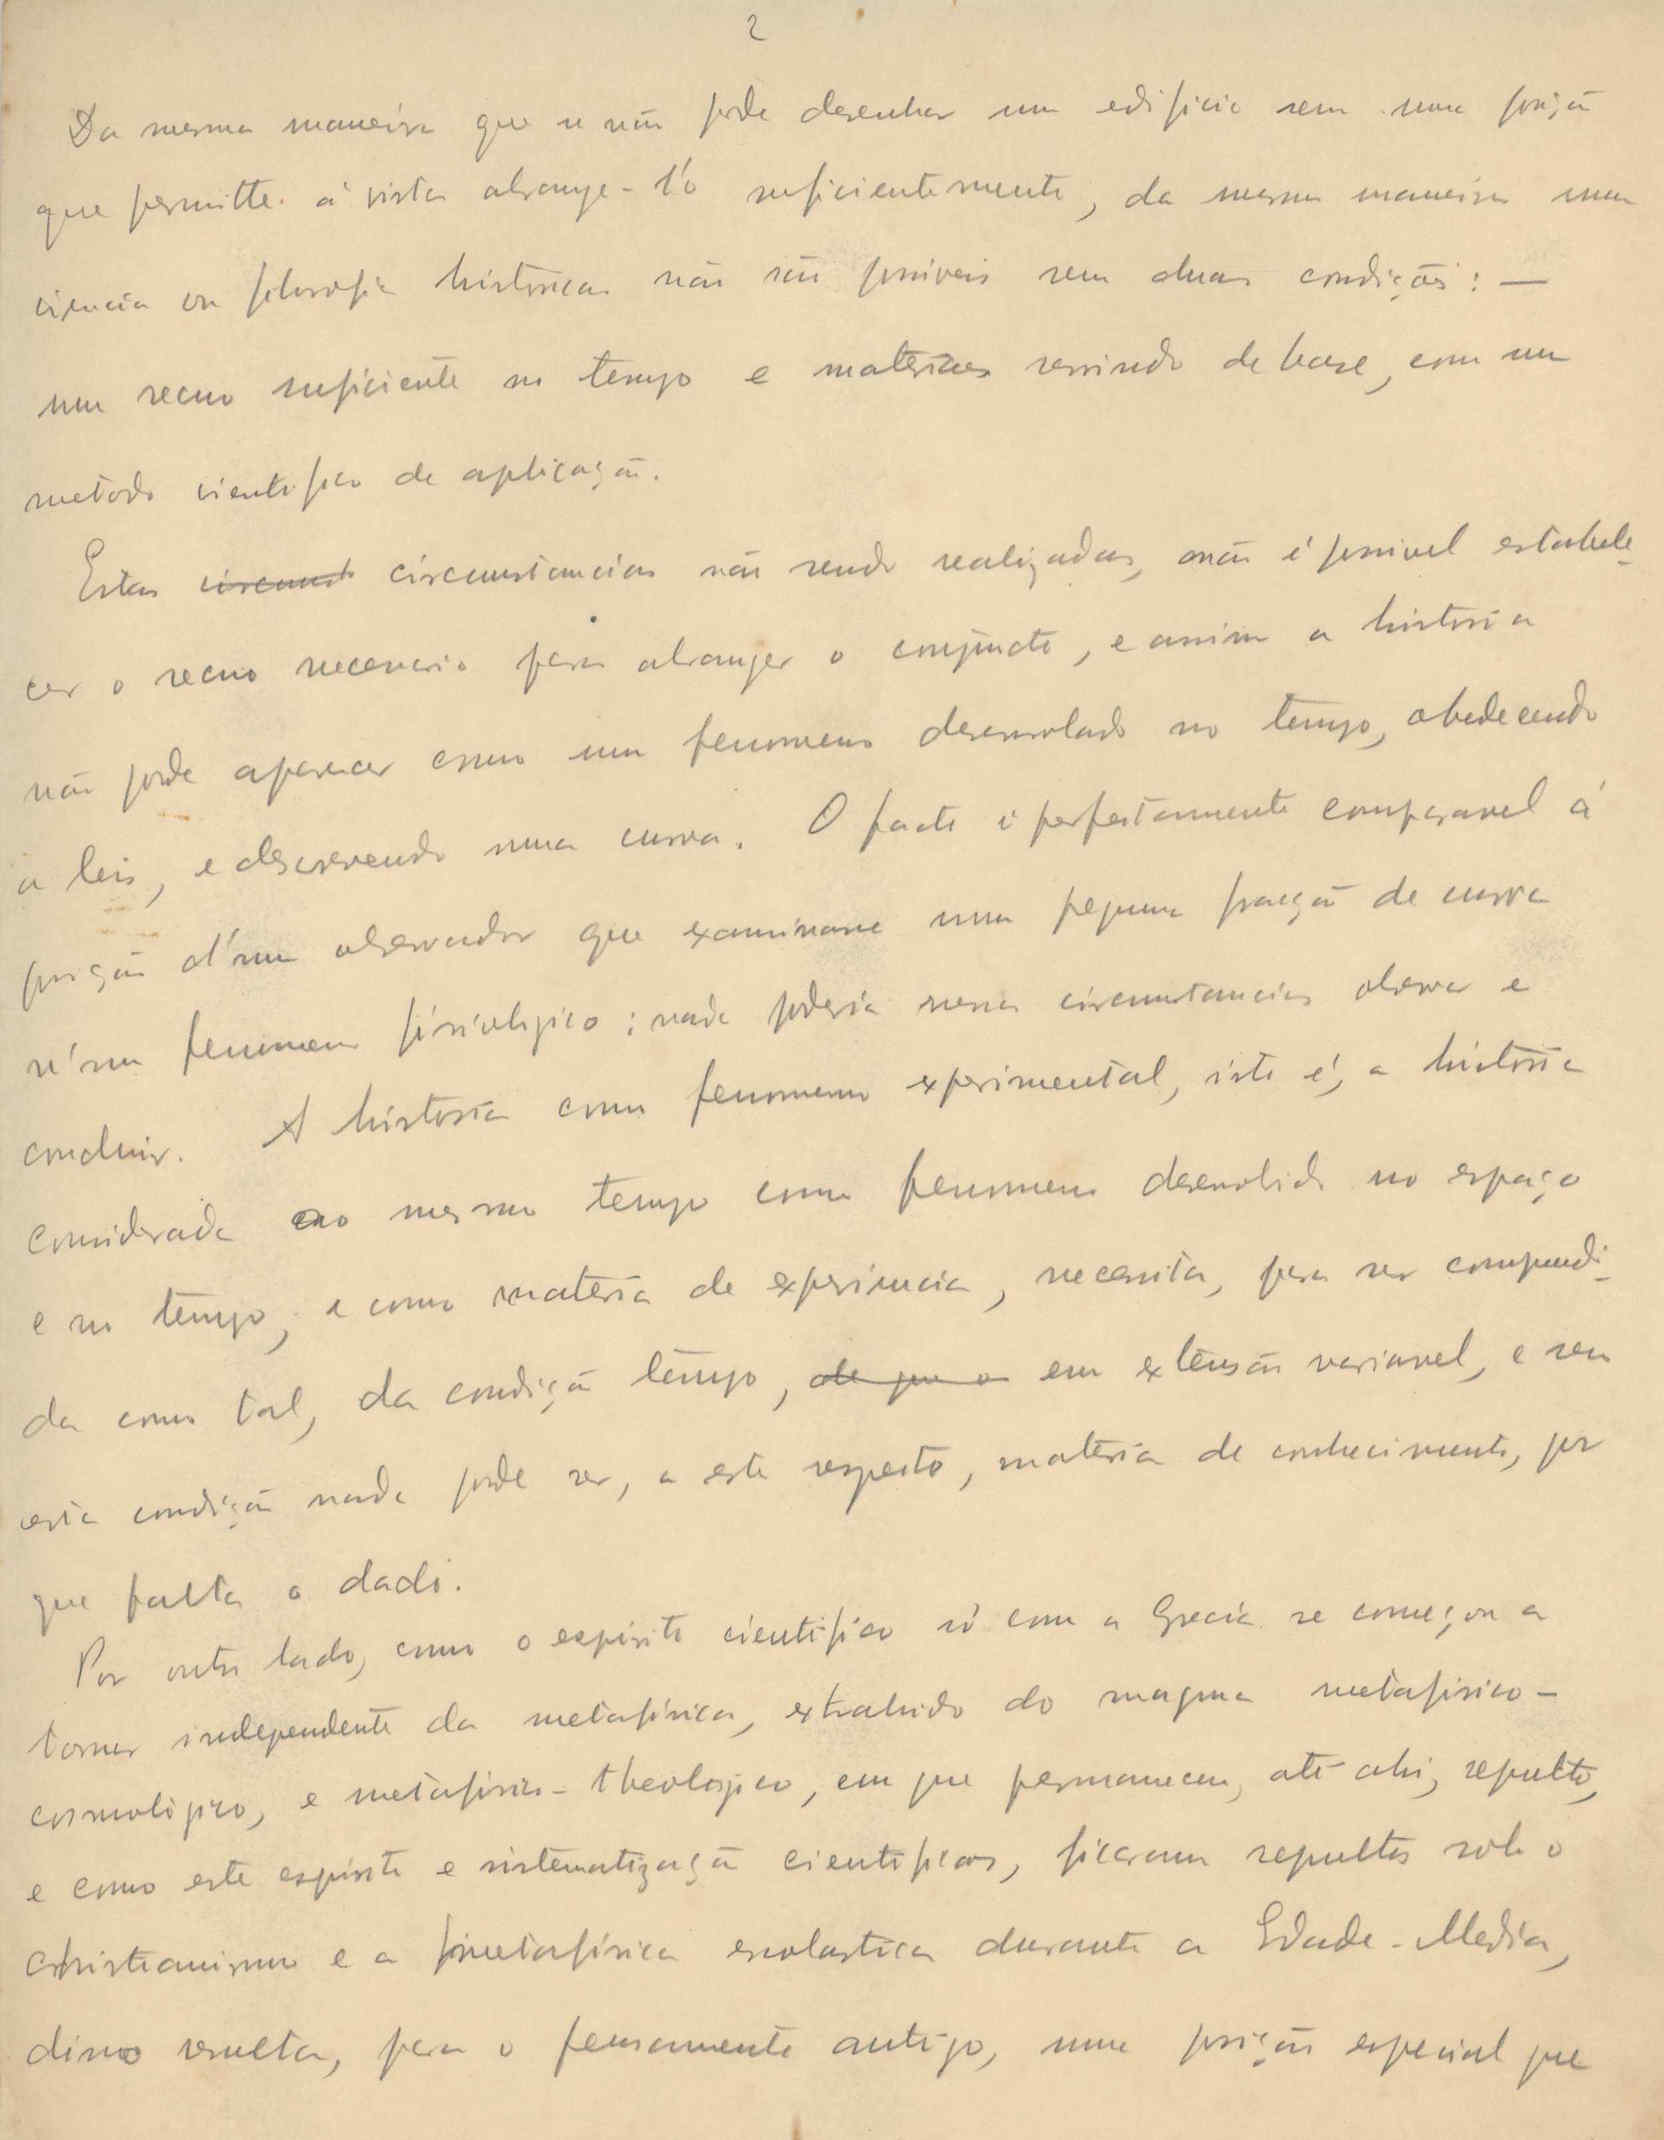 2
Da mesma maneira que se não pode desenhar um edificio sem uma posição
que permitte á vista abrange-l'o suficientemente, da mesma maneira uma
ciencia ou filosofia historicas não são possiveis sem duas condições: —
um recuo suficiente no tempo e materiaes servindo de base, com um
metodo cientifico de aplicação.
Estas circumst circumstancias não sendo realizadas, não é possivel estabele-
cer o recuo necessario para abranger o conjuncto, e assim a historia
não pode aparecer como um fenomeno desenrolado no tempo, obedecendo
a leis, e descrevendo uma curva. O facto é perfeitamente comparavel á
posição d'um observador que examinasse uma pequena fracção de curva
n'um fenomeno fisiologico; nada poderia nessas circumstancias observar e
concluir. A historia como fenomeno experimental, isto é, a historia
considerada ao mesmo tempo como fenomeno desenvolvido no espaço
e no tempo, e como materia de experiencia, necessita, para ser comprendi-
da como tal, da condição tempo, de que o em extensão variavel, e sem
esta condição nada pode ser, a este respeito, materia de conhecimento, por
que falta o dado.
Por outro lado, como o espirito cientifico só com a Grecia se começou a
tornar independente da metafisica, extrahido do magma metafisico-
cosmologico, e metafisico-theologico, em que permanecera, até ahi, sepulto,
e como este espirito e sistematização cientificos, ficaram sepultos sob o
christianismo e a metafisica escolastica durante a Edade-Media,
disso resulta, para o pensamento antigo, uma posição especial que